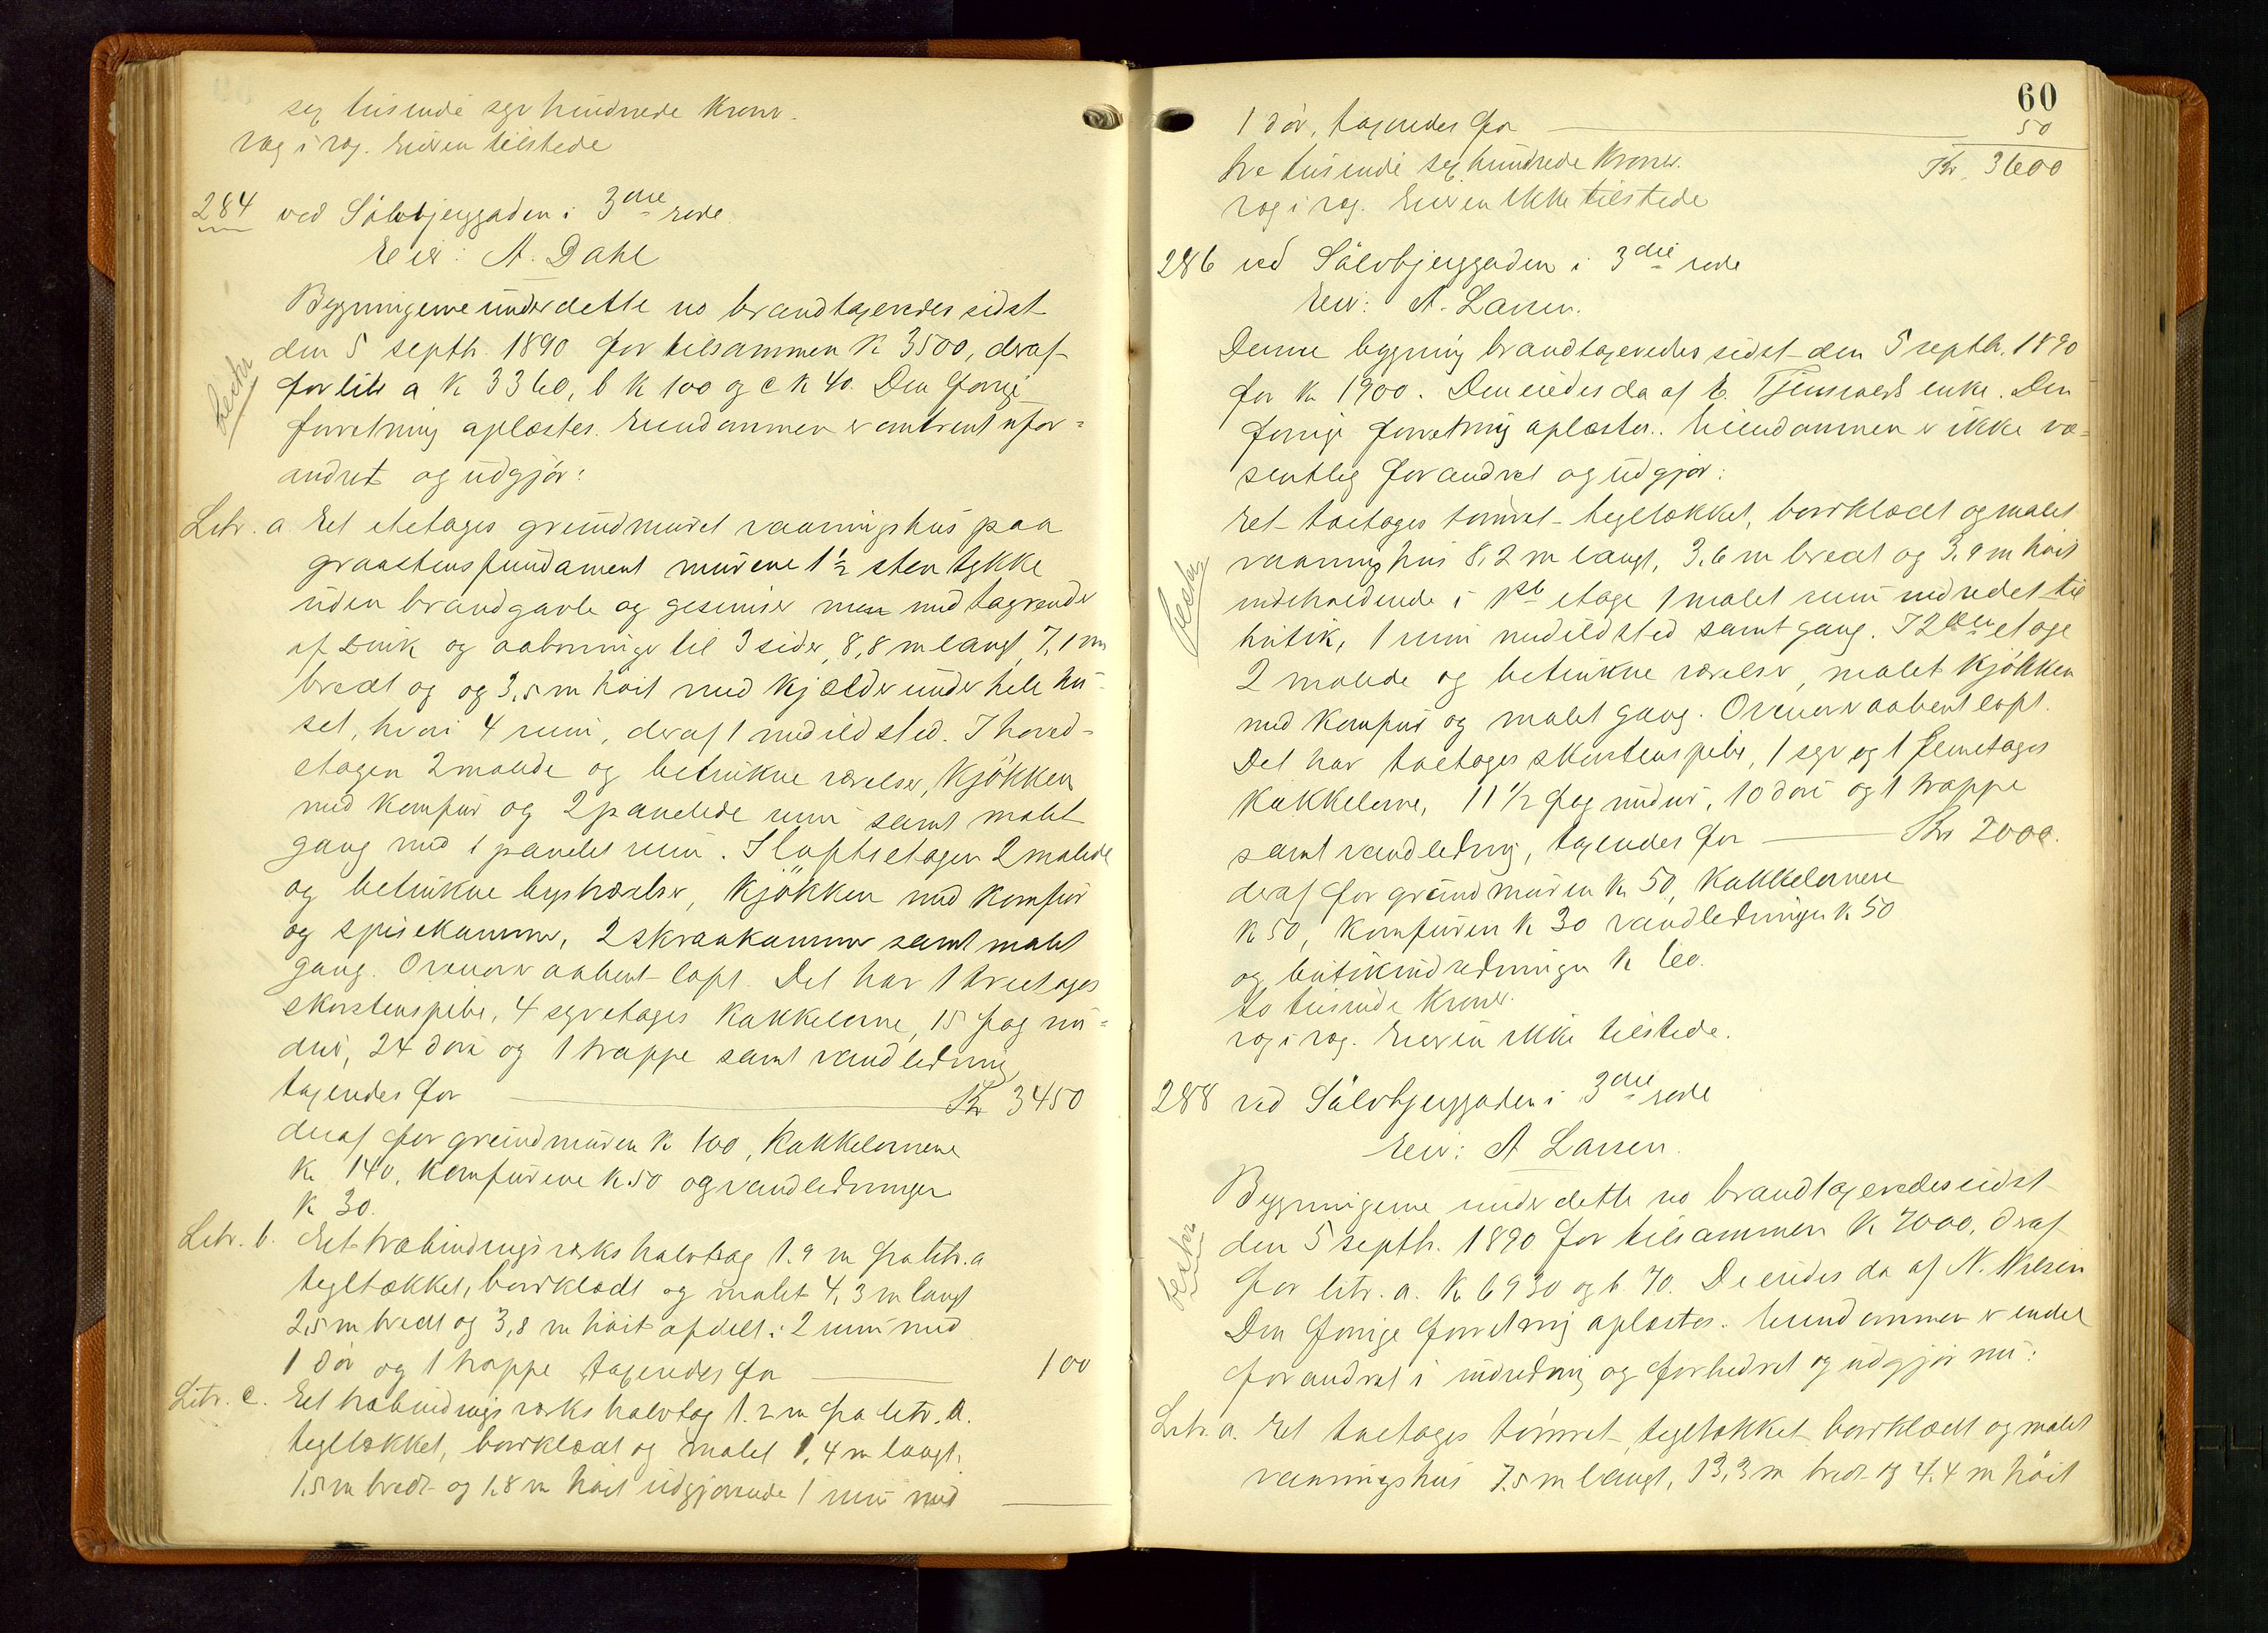 sex tusinde syv hundrede Kroner.
rog i rog. Eieren tilstede
284 ved Sölvbjerggaden i 3die rode.
Eier: A. Dahl
Bygningerne under dette no brandtaxeredes sidst
den 5 septbr. 1890 for tilsammen K 3500, deraf
for litr a K 3360, b K 100 og c K 40. Den forrige
forretning oplæstes. Eiendommen er omtrent ufor=
andret og udgjör:
Litr. a Et etetages grundmuret vaaningshus paa
graastensfundament murene 1½ sten tykke
uden brandgavle og gesimser men med tagrender
af zink og aabninger til 3 sider, 8,8 m langt 7,1 m
bredt og og 3,5 m höit med Kjælder under hele hu=
set, hvori 4 rum, deraf 1 med ildsted. I hoved=
etagen 2 malede og betrukne værelser, Kjökken
med Komfur og 2 panelede rum samt malet
gang med 1 panelet rum. I loftsetagen 2 malede
og betrukne kvistværelser, Kjökken med Komfur
og spisekammer, 2 skraakammer samt malet
gang. Ovenover aabent loft. Det har 1 treetages
skorstenspibe, 4 syvetages Kakkelovne, 15 fag vin=
duer, 24 döre og 1 trappe samt vandledning
taxeredes for Kr 3450
deraf for grundmuren K 100, Kakkelovnene
K 140, Komfurene K 50 og vandledningen
K 30.
Litr. b. Et træbindingsværks halvtag 1.9 m fra litr. a
tegltækket, bordklædt og malet 4,3 m langt
2,5 m bredt og 3,8 m höit afdelt i 2 rum med
1 dör og 1 trappe taxeredes for 100
Litr. c. Et træbindingsværks halvtag 1.2 m fra litr. a.
tegltækket, bordklædt og malet 1,4 m langt,
1.5 m bredt og 1.8 m höit udgjörende 1 rum med
60
1 dör, taxeredes for 50
tre tusinde sex hundrede Kroner. Kr. 3600
rog i rog. Eieren ikke tilstede
286 ved Sölvbjerggaden i 3die rode
Eier: A. Larsen.
Denne bygning brandtaxeredes sidst den 5 septbr. 1890
for K 1900. Den eiedes da af E. enke. Den
forrige forretning oplæstes. Eiendommen er ikke væ=
sentlig forandret og udgjör:
Et toetages tömret tegltækket, bordklædt og malet
vaaningshus 8,2 m langt, 3,6 m bredt og 3,9 m höit
indeholdende i 1ste etage 1 malet rum indredet til
butik, 1 rum med ildsted samt gang. I 2den etage
2 malede og betrukne værelser, malet Kjökken
med Komfur og malet gang. Ovenover aabent loft.
Det har toetages skorstenspibe, 1 syv og 1 femetages
Kakkelovne, 11 ½ fag vinduer, 10 döre og 1 trappe
samt vandledning, taxeredes for Kr 2000.
deraf for grundmuren K 50, Kakkelovnene
K 50, Komfuren K 30 vandledningen K 50
og butikindredningen K 60.
to tusinde Kroner.
rog i rog. Eieren ikke tilstede.
288 ved Sölvbjerggaden i 3die rode
Eier: A Larsen.
Bygningerne under dette no brandtaxeredes sidst
den 5 septbr. 1890 for tilsammen K 7000, deraf
for litr. a. K 6930 og b. 70. De eiedes da af N. Nilsen
Den forrige forretning oplæstes. Eiendommen er endel
forandret i indredning og forbedret og udgjör nu:
Litr. a. Et toetages tömret tegltækket bordklædt og malet
vaaningshus 7.5 m langt, 13,3 m bredt og 4.4 m höit